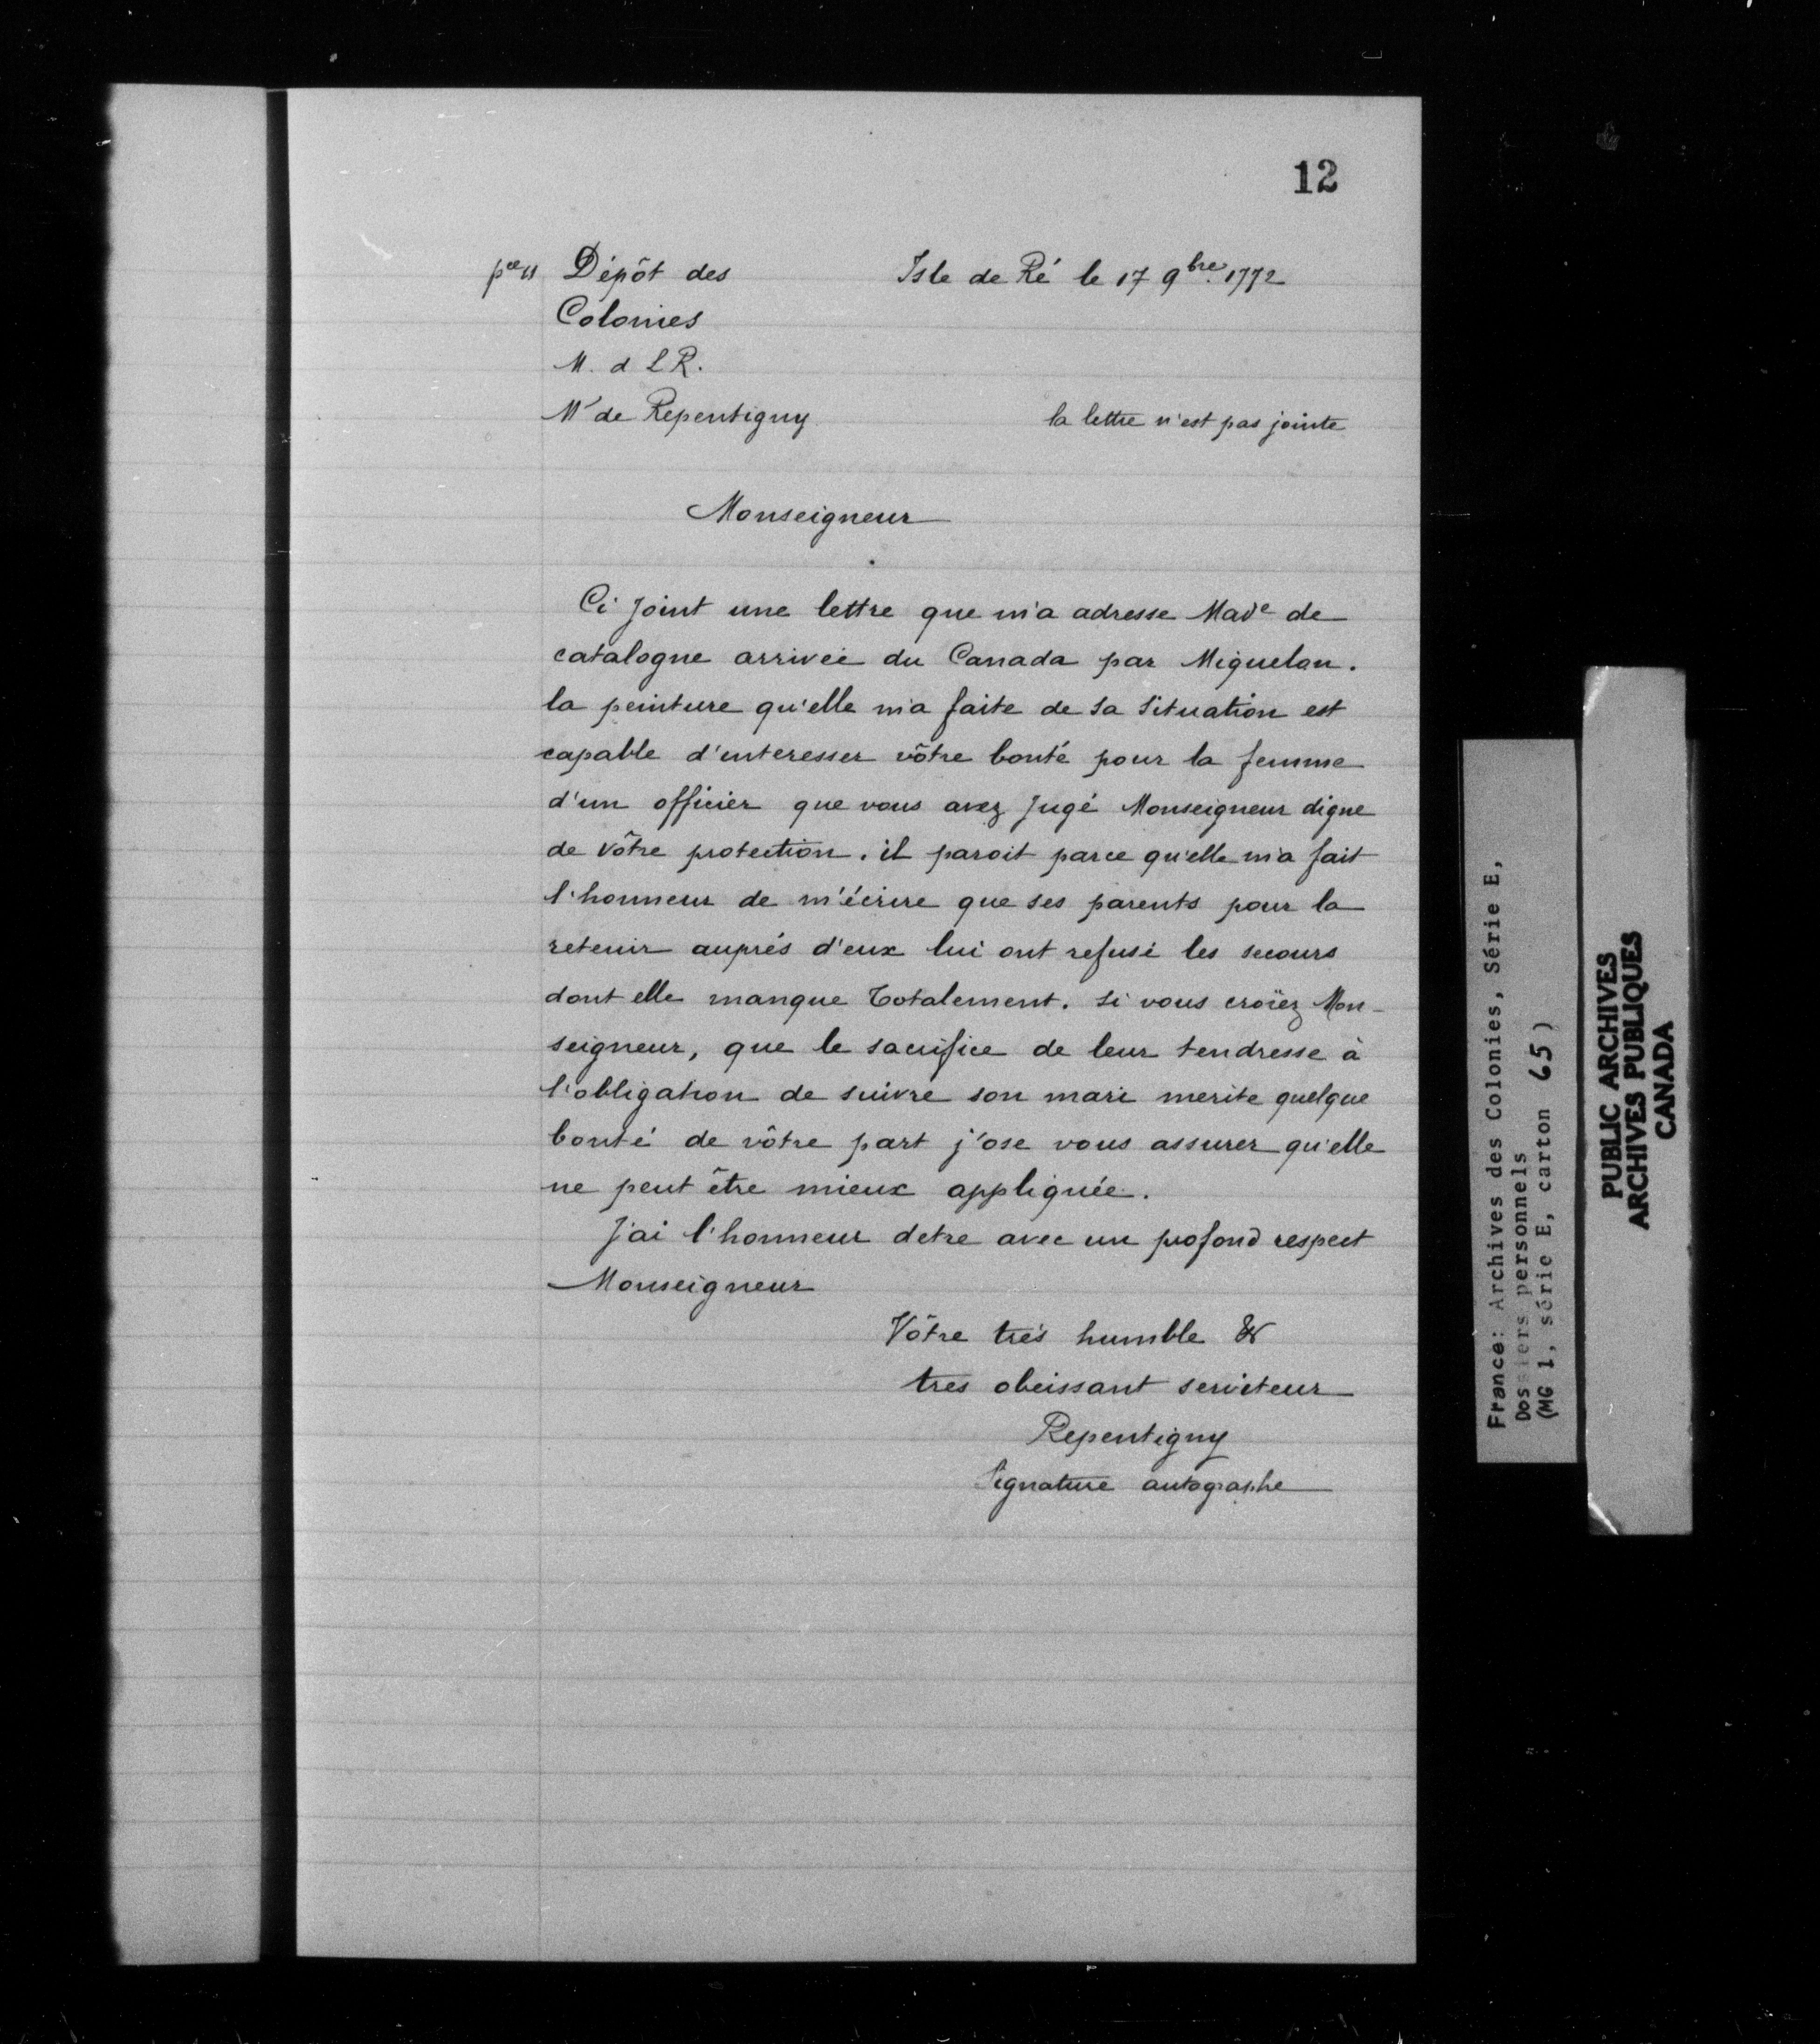 12
pce 11 Dépôt des Isle de Ré le 17 9bre. 1772
Colonies
M. d L R.
Mr de Repentigny la lettre n'est pas jointe
Monseigneur
Ci Joint une lettre que m'a adresse Made de
catalogne arrivée du Canada par Miquelon.
la peinture qu'elle m'a faite de sa situation est
capable d'interesser vôtre bonté pour la femme
d'un officier que vous avez Jugé Monseigneur digne
de vôtre protection. il paroit parce qu'elle m'a fait
l'honneur de m'écrire que ses parents pour la
retenir auprés d'eux lui ont refusé les secours
dont elle manque totalement. si vous croïez Mon-
seigneur, que le sacrifice de leur tendresse à
l'obligation de suivre son mari merite quelque
bonté de vôtre part j'ose vous assurer qu'elle
ne peut être mieux appliquée.
J'ai l'honneur detre avec un profond respect
Monseigneur
Vôtre trés humble &
tres obeissant serviteur
Repentigny
Signature autographe
France: Archives des Colonies, Série E,
Dossiers personnels
(MG 1, série E, carton 65)
PUBLIC ARCHIVES
ARCHIVES PUBLIQUES
CANADA